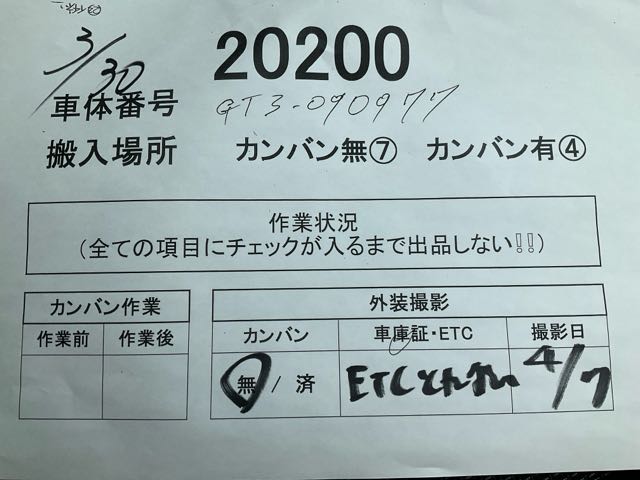 3/30
20200
車体番号 GT3-090977
搬入場所 カンバン無⑦ カンバン有④
作業状況
(全ての項目にチェックが入るまで出品しない!!)
カンバン作業
作業前 作業後
外装撮影
カンバン 車庫証・ETC 撮影日
無 / 済 ETCとれない 4/7